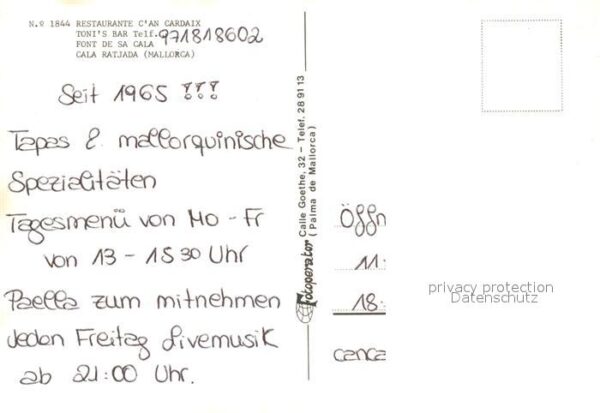 N.º 1844 RESTAURANTE C'AN CARDAIX
TONI'S BAR Telf. 971818602
FONT DE SA CALA
CALA RATJADA (MALLORCA)
Seit 1965 !!!
Tapas & mallorquinische
Spezialitäten
Tagesmenü von Mo - Fr
von 13 - 1530 Uhr
Paella zum mitnehmen
Jeden Freitag Livemusik
ab 21:00 Uhr.
Fotoperator Calle Goethe, 32 - Telef. 28 91 13
(Palma de Mallorca)
Öffn
11:
18:
canca
privacy protection
Datenschutz